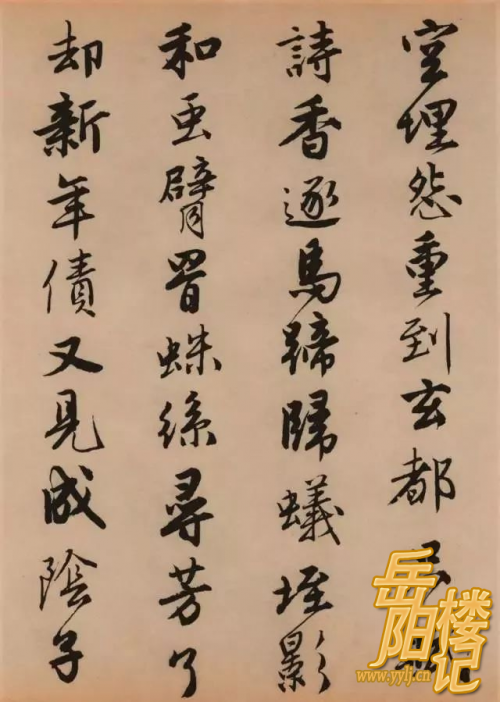 空埋怨重到玄都
詩香逐馬蹄歸蟻垤影
和虫臂罥蛛絲尋芳了
却新年債又見成陰子
岳阳楼记
www.yylj.cn